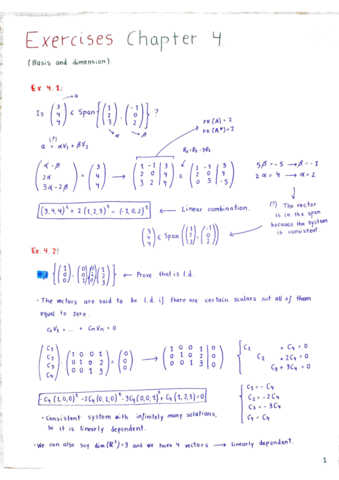 Exercises Chapter 4
(Basis and dimension)
Ex. 4.1:
Is (3 4 4) ∈ Span{(1 2 3), (-1 0 2)} ?
α β
a = αV₁ + βV₂
(α - β, 2α, 3α - 2β) = (3 4 4) → (1 -1 | 3, 2 0 | 4, 3 2 | 4) = (1 -1 | 3, 2 0 | 4, 0 5 | -5)
5β = -5 → β = -1
2α = 4 → α = 2
(3,4,4)ᵗ = 2(1,2,3)ᵗ - (-1,0,2)ᵗ → Linear combination.
(?) The vector
is in the span
because the system
is consistent.
(3 4 4) ∈ Span{(1 2 3), (-1 0 2)}
Ex. 4.2:
← Prove that is l.d.
- The vectors are said to be l.d. if there are certain scalars not all of them
equal to zero.
C₁V₁ + ... + CnVn = 0
(C₁ C₂ C₃ C₄) · (1 0 0 1, 0 1 0 2, 0 0 1 3) = (0 0 0) → (1 0 0 1 | 0, 0 1 0 2 | 0, 0 0 1 3 | 0)
C₁ + C₄ = 0
C₂ + 2C₄ = 0
C₃ + 3C₄ = 0
-C₄(1,0,0)ᵗ - 2C₄(0,1,0)ᵗ - 3C₄(0,0,1)ᵗ + C₄(1,2,3) = 0
C₁ = -C₄
C₂ = -2C₄
C₃ = -3C₄
C₄ = C₄
· Consistent system with infinitely many solutions,
so it is linearly dependent.
-We can also say dim(R³) = 3 and we have 4 vectors → linearly dependent.
1